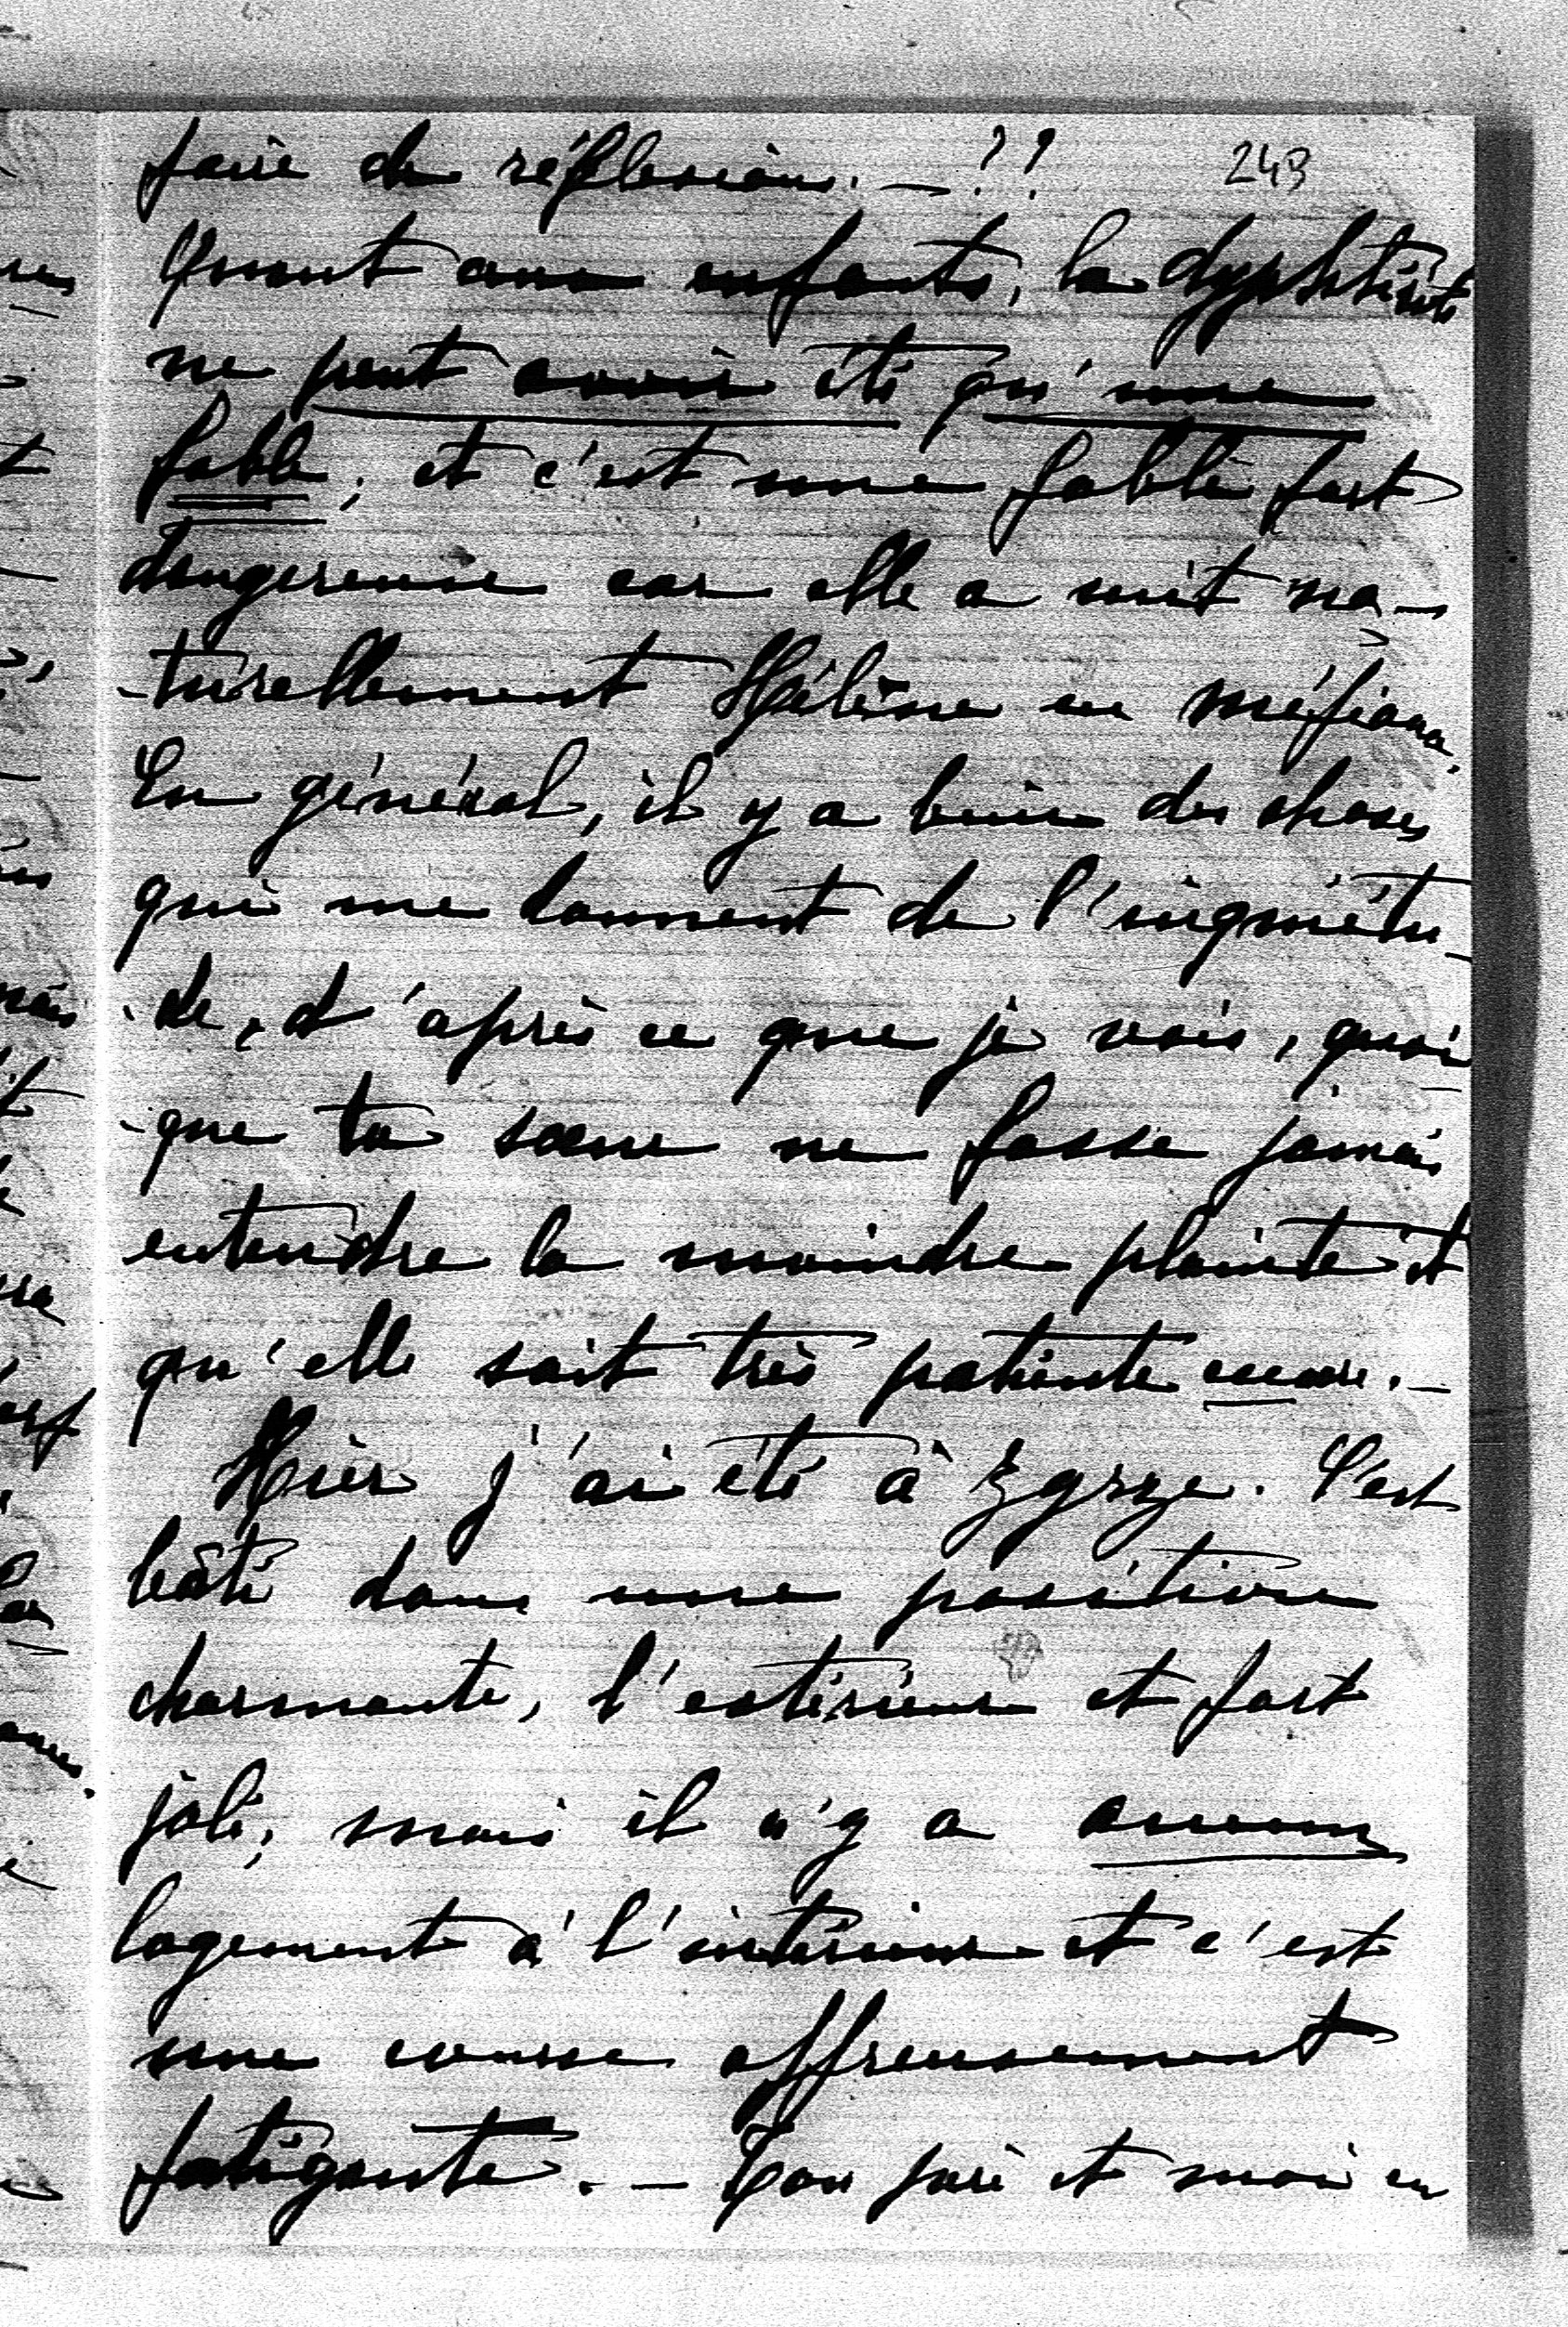 faire de réflexions. — ? ?
243
Quant aux enfants, la dyphtérite
ne peut avoir été qu'une
fable, et c'est une fable fort
dangereuse car elle a mit na-
-turellement Hélène en méfiance.
En général, il y a bien des choses
qui me donnent de l'inquiétu-
-de, d'après ce que je vois, quoi-
-que ta sœur ne fasse jamais
entendre la moindre plainte et
qu'elle soit très patiente encore. —
Hier j'ai été à Zgrze. C'est
bâti dans une position
charmante, l'extérieur et fort
joli, mais il n'y a aucun
logement à l'intérieur et c'est
une course affreusement
fatigante. — Ton père et moi en